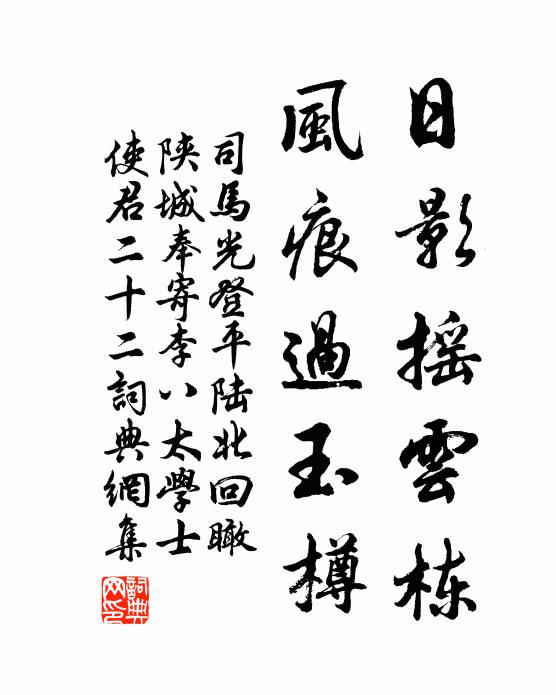 日影摇雲栋
風痕過玉樽
司馬光登平陸北回瞰
陕城奉寄李八太學士
使君二十二詞典網集
詞典网印